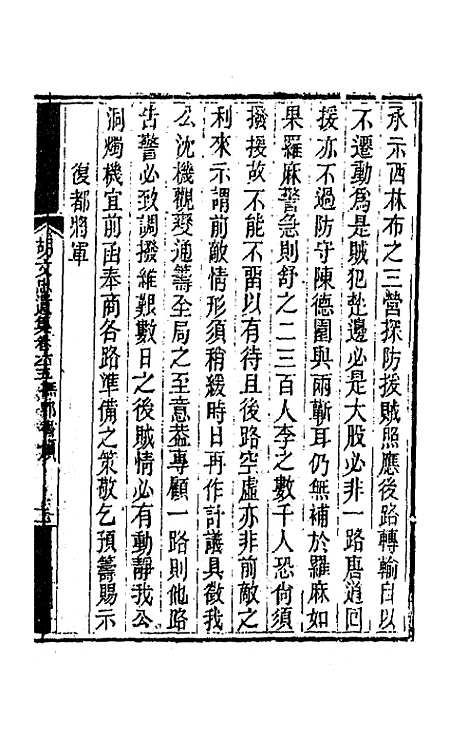 承示西林布之三營探防援賊照應後路轉輸自以
不遷動為是賊犯赴邊必是大股必非一路唐道回
援亦不過防守陳德園與兩蘄耳仍無補於羅麻如
果羅麻警急則舒之二三百人李之數千人恐尚須
撥援故不能不畱以有待且後路空虛亦非前敵之
利來示謂前敵情形須稍緩時日再作計議具徵我
公沈機觀變通籌全局之至意葢專顧一路則他路
告警必致調撥維艱數日之後賊情必有動靜我公
洞燭機宜前函奉商各路準備之策敬乞預籌賜示
復都將軍
胡文忠遺集卷六十五 撫鄂書牘